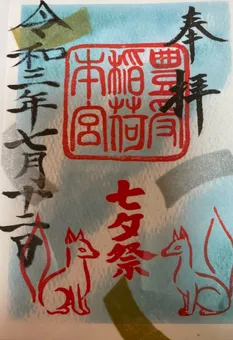 奉拝
豊受
稲荷
本宮
七夕祭
令和二年七月十二日